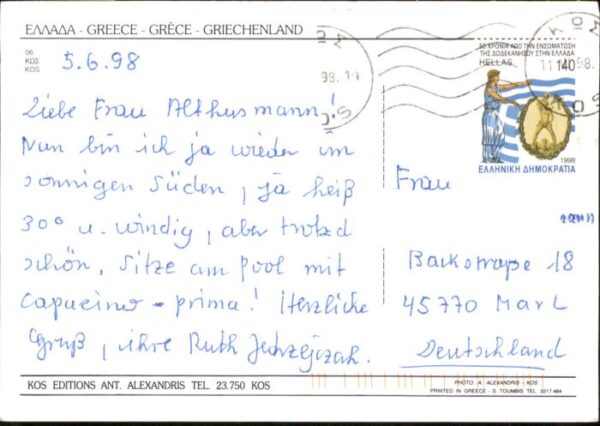 ΕΛΛΑΔΑ - GREECE - GRÈCE - GRIECHENLAND
98
ΚΩΣ
KOS
5.6.98
Liebe Frau Althusmann!
Nun bin ich ja wieder im
sonnigen Süden, ja heiß
30° u. windig, aber trotzd
schön. Sitze am Pool mit
Capucino - prima! Herzliche
Gruß, ihre Ruth
50 ΧΡΟΝΙΑ ΑΠΟ ΤΗΝ ΕΝΣΩΜΑΤΩΣΗ
ΤΗΣ ΔΩΔΕΚΑΝΗΣΟΥ ΣΤΗΝ ΕΛΛΑΔΑ
HELLAS 140
1998
ΕΛΛΗΝΙΚΗ ΔΗΜΟΚΡΑΤΙΑ
ΚΩΣ
KOS
Frau
Backstraße 18
45770 Marl
Deutschland
KOS EDITIONS ANT. ALEXANDRIS TEL. 23.750 KOS
PHOTO: A. ALEXANDRIS - KOS
PRINTED IN GREECE - S. TOUMBIS TEL. 3217 484